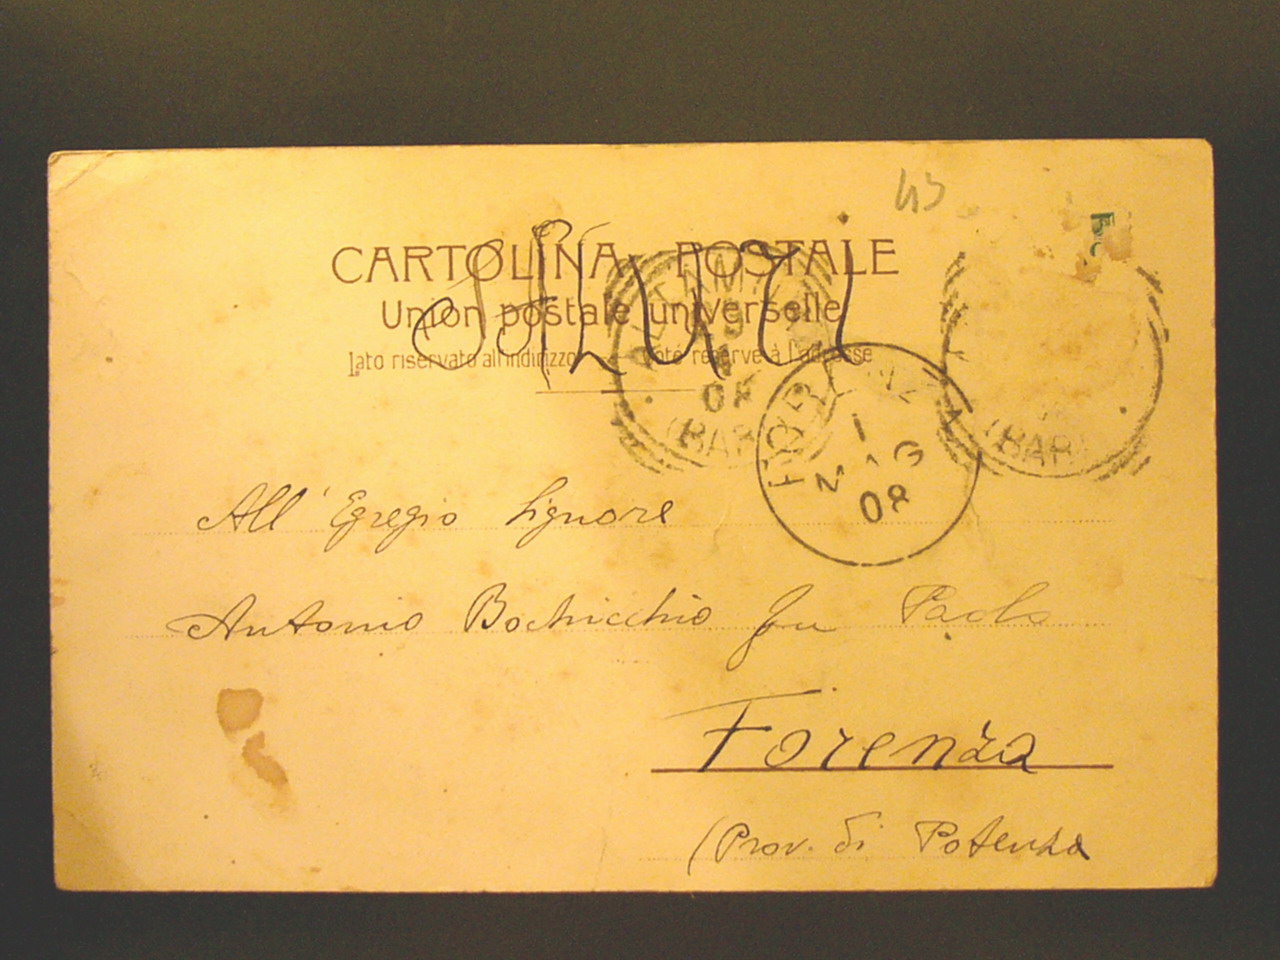 43
CARTOLINA POSTALE
Union postale universelle
lato riservato all'indirizzo
coté réservé à l'adresse
ALTAMURA
08
(BARI)
FORENZA
1
MAG
08
(BARI
All' Egregio Signore
Antonio Bochicchio fu Paolo
Forenza
(Prov. di Potenza